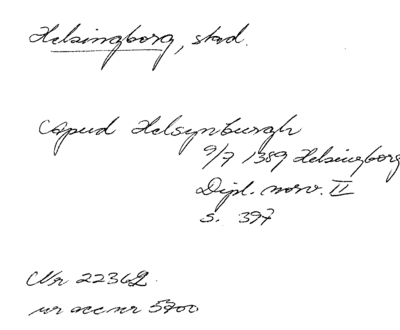 Helsingborg, stad.
Capud Helsynburgh
9/7 1389 Helsingborg
Dipl. norv. II
s. 397
Nr 22362
ur acc nr 5700